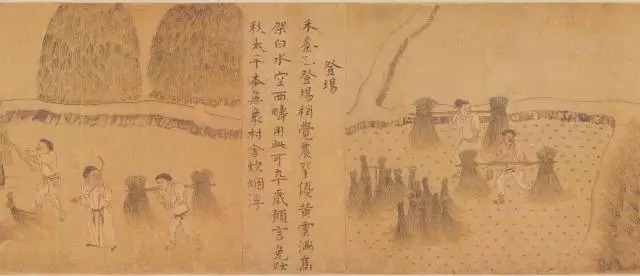 登場
禾黍已登場稍覺農事優黄雲滿高
架白水空西疇用此可卒歲願言免防
秋太平本無象村舍炊烟浮